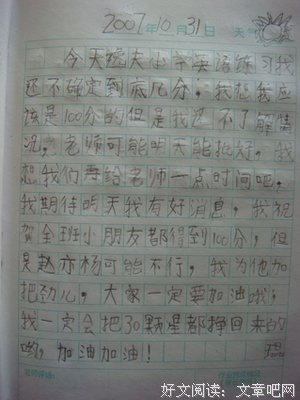 2007年10月31日 天气
今天晚大小卡英语练习我
还不确定到底几分，我想我应
该是100分的但是我还不了解情
况，老师可能明天能批好，我
想我们再给老师一点时间吧，
我期待明天我有好消息，我祝
贺全班小朋友都得到100分，但
是赵亦杨可能不行，我为他加
把劲儿，大家一定要加油哦，
我一定会把30颗星都挣回来的
哟，加油加油！
老师评语：
好文阅读：文章吧网